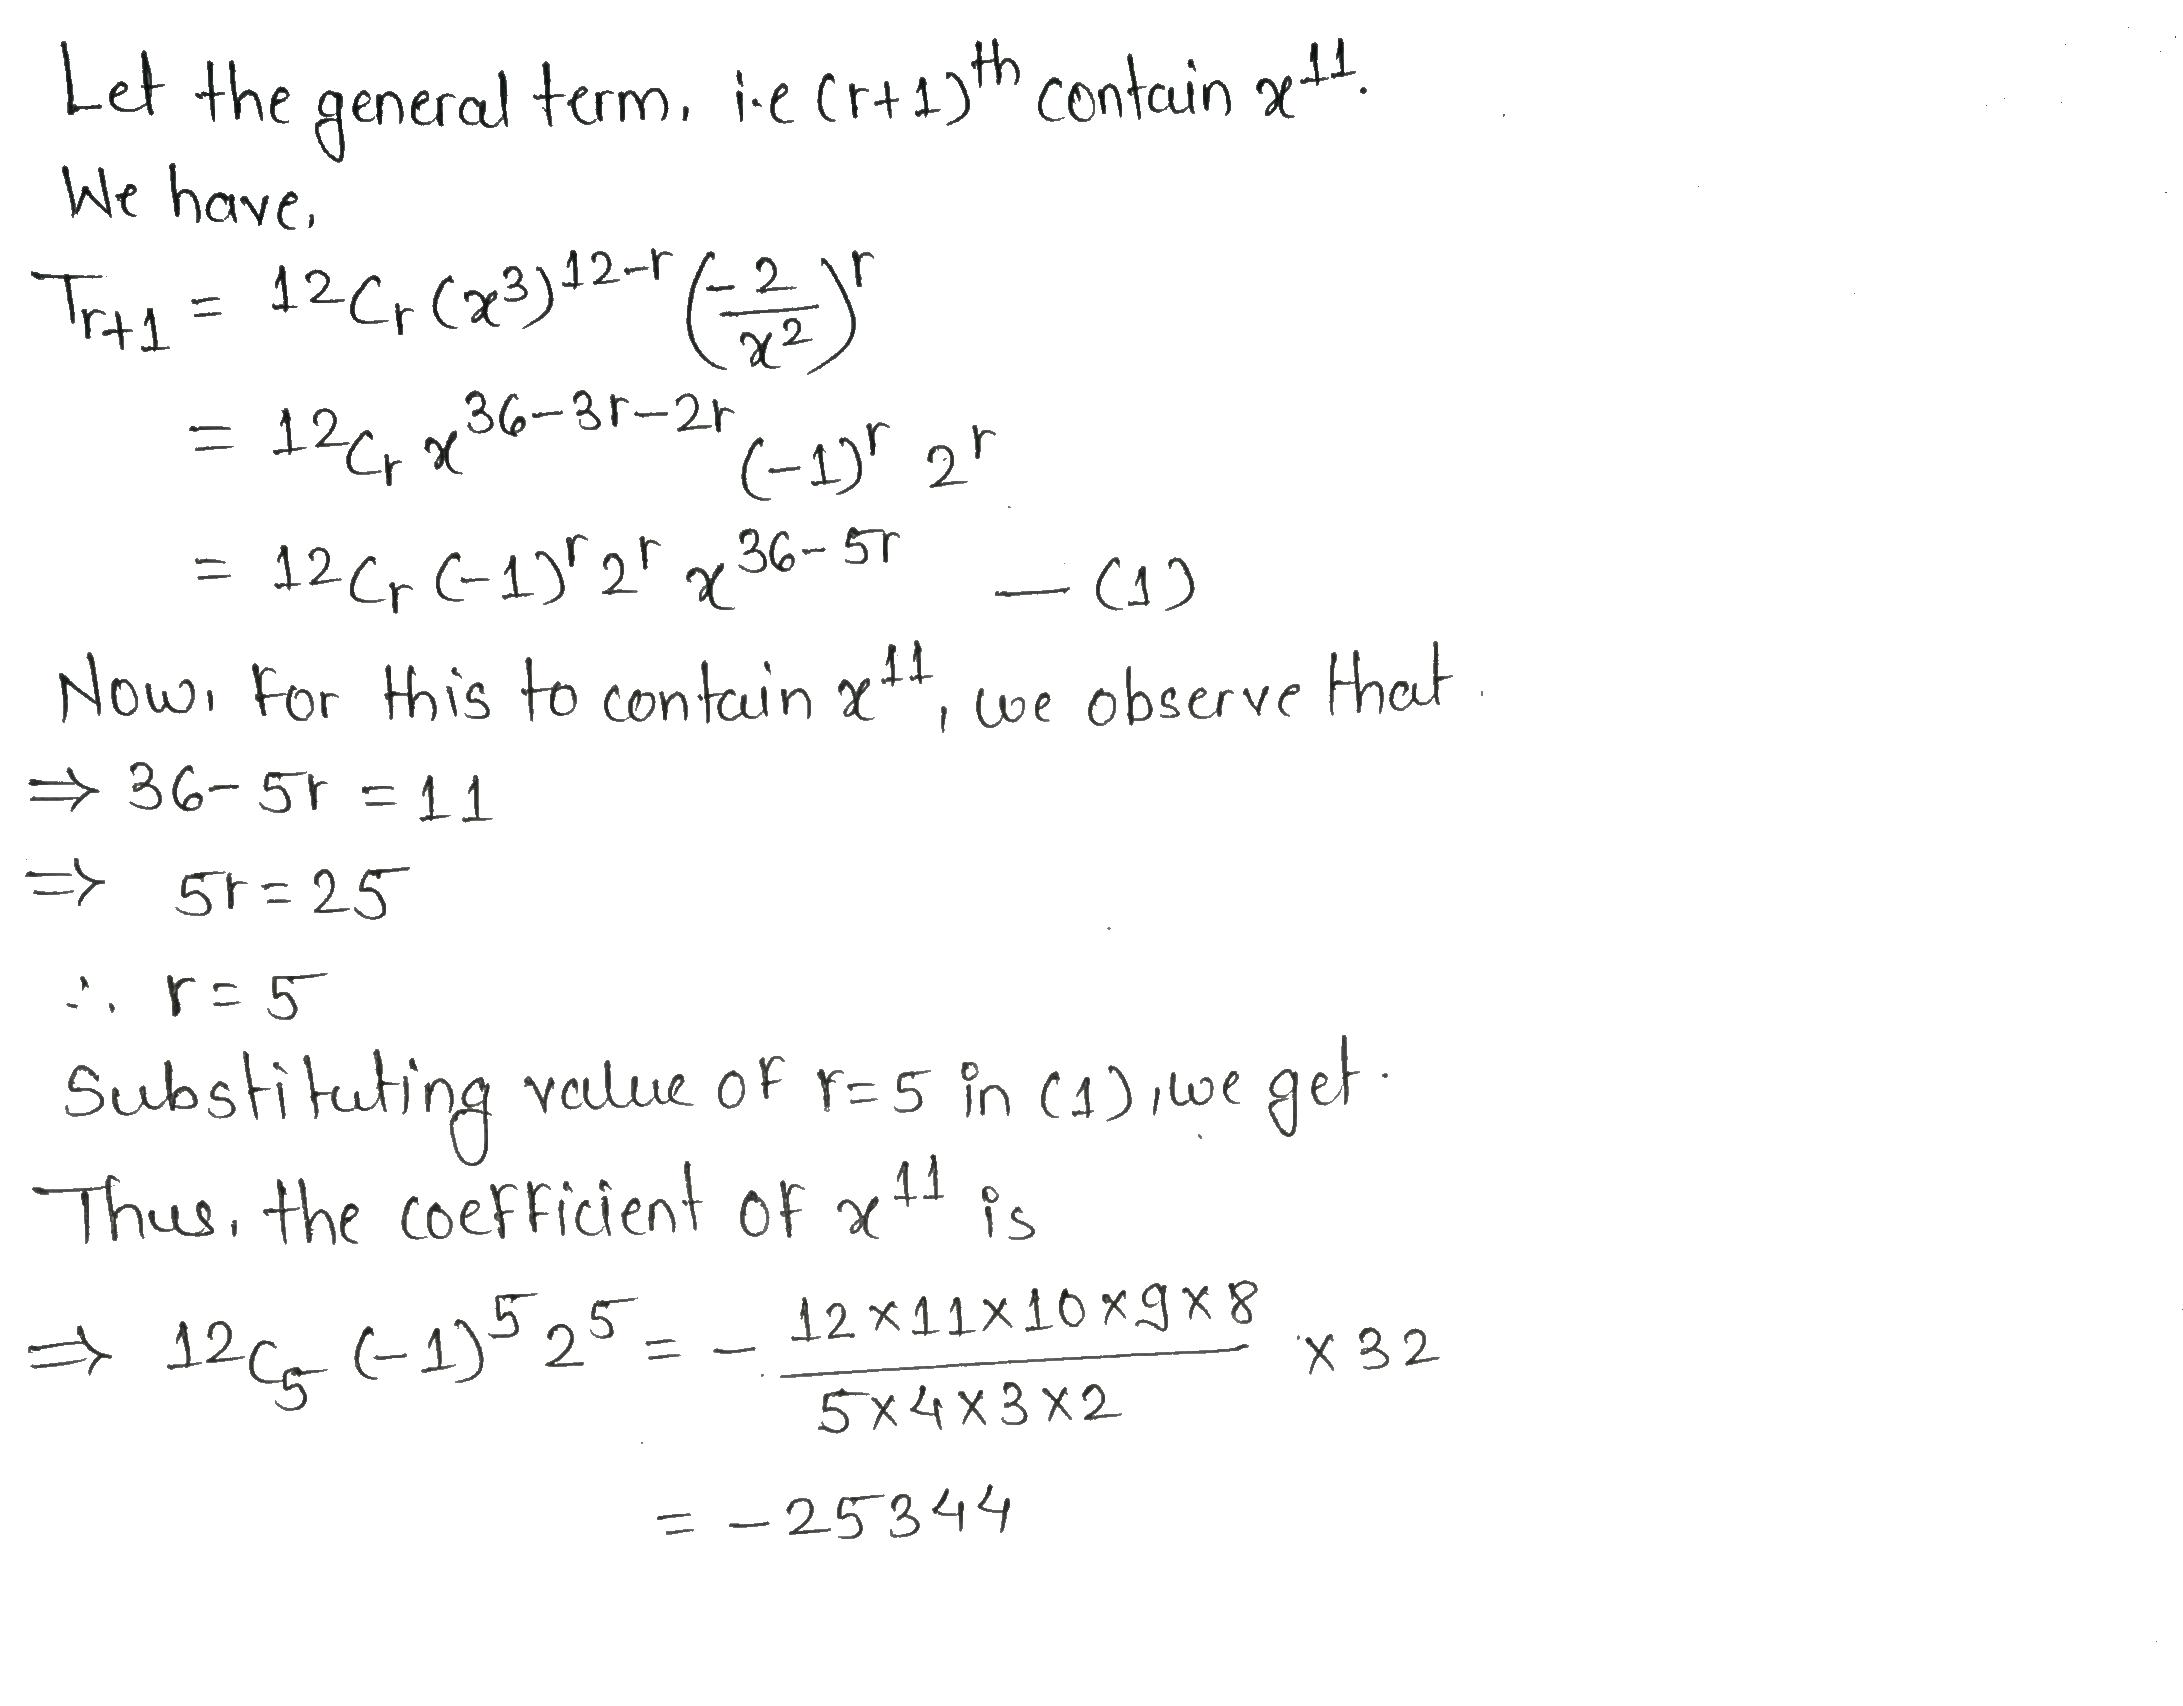 Let the general term, i.e (r+1)^th contain x^11.
We have,
T_{r+1} = 12C_r (x^3)^{12-r} (-2/x^2)^r
= 12C_r x^{36-3r-2r} (-1)^r 2^r
= 12C_r (-1)^r 2^r x^{36-5r} — (1)
Now, for this to contain x^11, we observe that.
⇒ 36-5r = 11
⇒ 5r = 25
∴ r = 5
Substituting value of r=5 in (1), we get.
Thus, the coefficient of x^11 is
⇒ 12C_5 (-1)^5 2^5 = - (12×11×10×9×8)/(5×4×3×2) ×32
= -25344